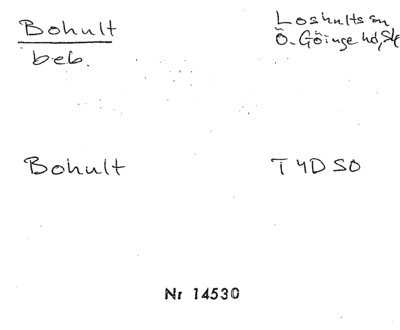 Bohult
beb.
Loshults sn
Ö. Göinge hd, Sk
Bohult
T4D SO
Nr 14530